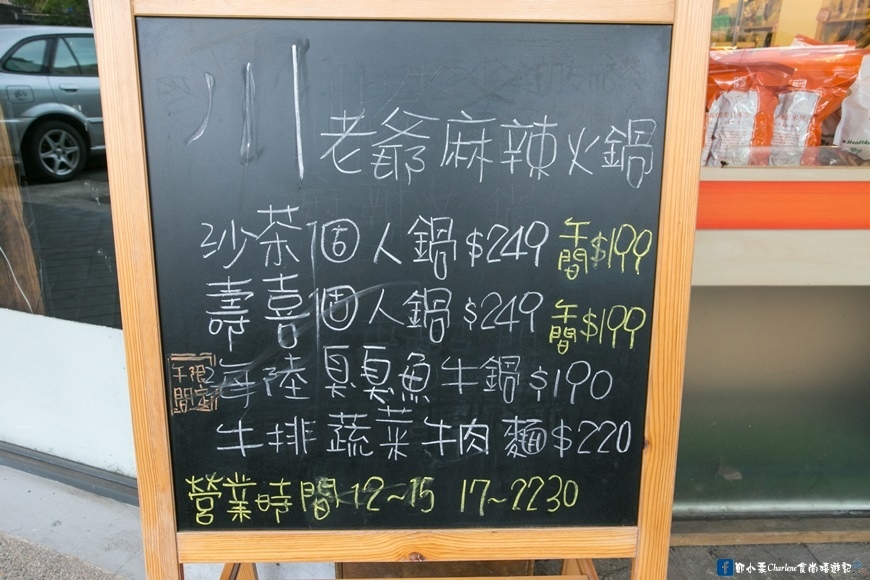 川老爺麻辣火鍋
沙茶個人鍋$249 午間$199
壽喜個人鍋$249 午間$199
午間限定 海陸臭臭魚牛鍋$190
牛排蔬菜牛肉麵$220
營業時間12~15 17~2230
Charlene食尚嬉遊記